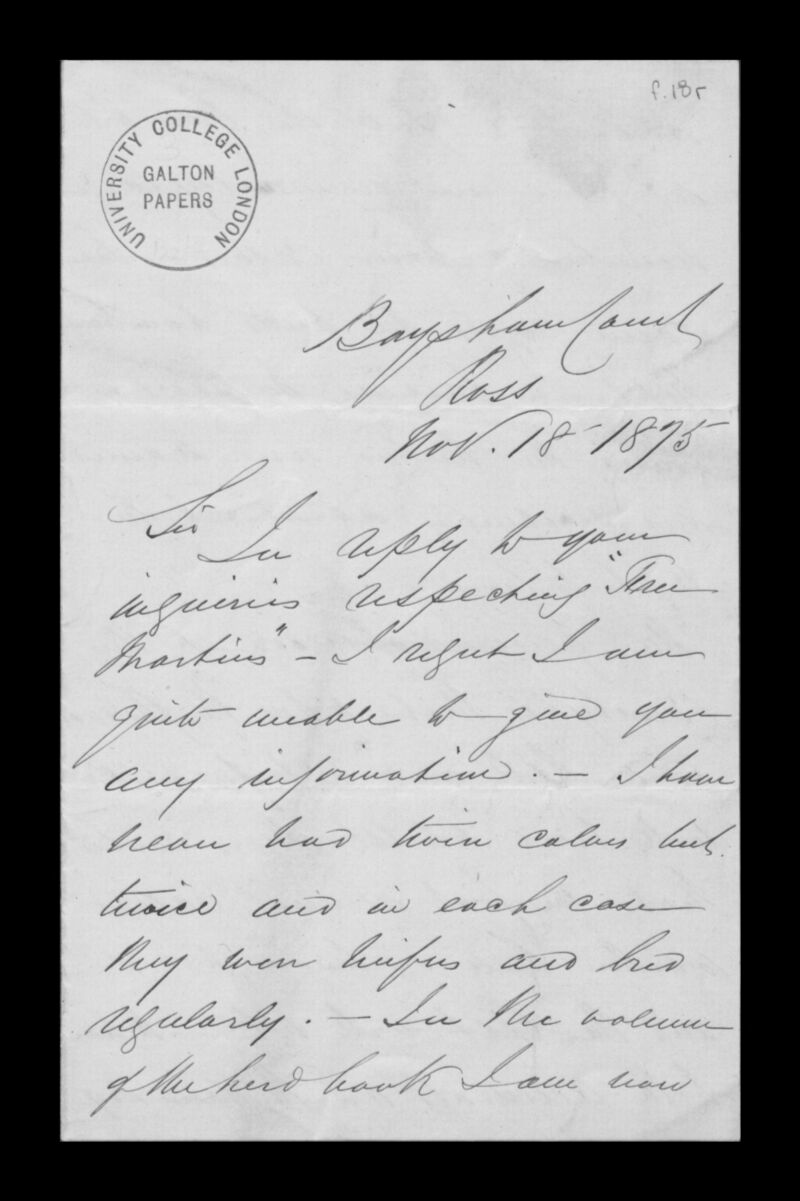 f.18r
UNIVERSITY COLLEGE LONDON
GALTON
PAPERS
Baysham Court
Ross
Nov. 18 1875
Sir
In reply to your
inquiries respecting "Free
Martins" - I regret I am
quite unable to give you
any information. - I have
never had twin calves but
twice and in each case
they were heifers and bred
regularly. - In the volume
of the herd book I am now